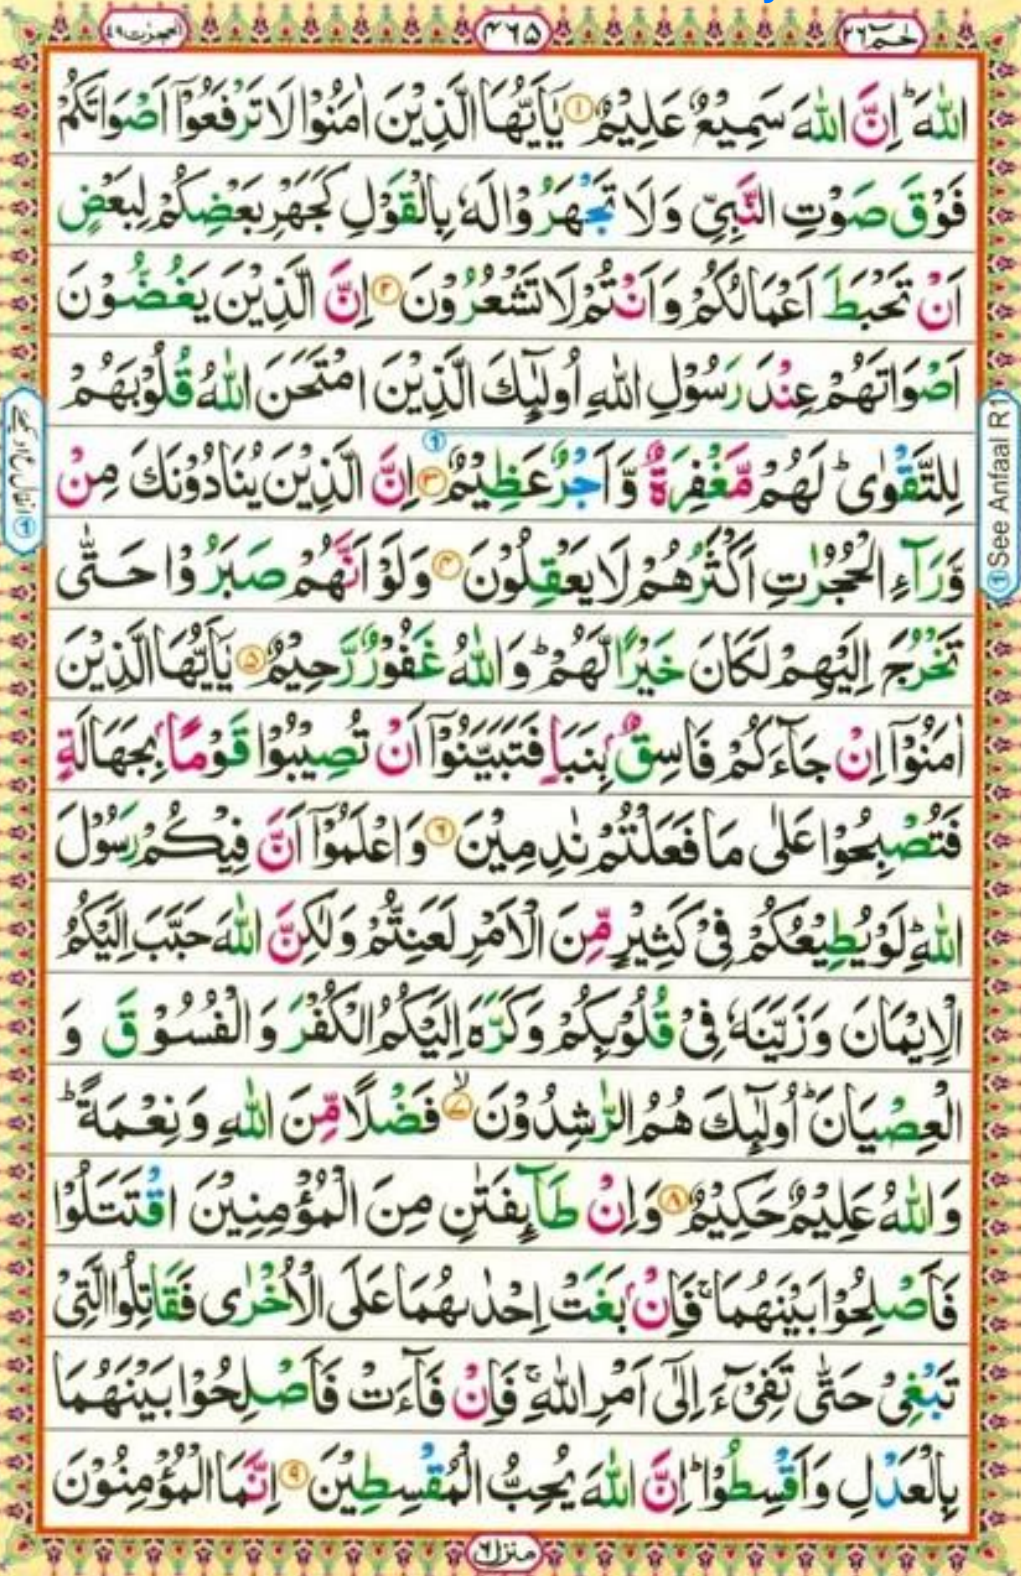 حٰمٓ ٢٦
٤٦٥
الحجرٰت ٤٩
اللّٰهَ ؕ اِنَّ اللّٰهَ سَمِيْعٌ عَلِيْمٌ ۝۱ يٰۤاَيُّهَا الَّذِيْنَ اٰمَنُوْا لَا تَرْفَعُوْۤا اَصْوَاتَكُمْ
فَوْقَ صَوْتِ النَّبِيِّ وَلَا تَجْهَرُوْا لَهٗ بِالْقَوْلِ كَجَهْرِ بَعْضِكُمْ لِبَعْضٍ
اَنْ تَحْبَطَ اَعْمَالُكُمْ وَاَنْتُمْ لَا تَشْعُرُوْنَ ۝۲ اِنَّ الَّذِيْنَ يَغُضُّوْنَ
اَصْوَاتَهُمْ عِنْدَ رَسُوْلِ اللّٰهِ اُولٰٓئِكَ الَّذِيْنَ امْتَحَنَ اللّٰهُ قُلُوْبَهُمْ
لِلتَّقْوٰى ؕ لَهُمْ مَّغْفِرَةٌ وَّاَجْرٌ عَظِيْمٌ ۝۳ اِنَّ الَّذِيْنَ يُنَادُوْنَكَ مِنْ
وَّرَآءِ الْحُجُرٰتِ اَكْثَرُهُمْ لَا يَعْقِلُوْنَ ۝۴ وَلَوْ اَنَّهُمْ صَبَرُوْا حَتّٰى
تَخْرُجَ اِلَيْهِمْ لَكَانَ خَيْرًا لَّهُمْ ؕ وَاللّٰهُ غَفُوْرٌ رَّحِيْمٌ ۝۵ يٰۤاَيُّهَا الَّذِيْنَ
اٰمَنُوْۤا اِنْ جَآءَكُمْ فَاسِقٌۢ بِنَبَاٍ فَتَبَيَّنُوْۤا اَنْ تُصِيْبُوْا قَوْمًۢا بِجَهَالَةٍ
فَتُصْبِحُوْا عَلٰى مَا فَعَلْتُمْ نٰدِمِيْنَ ۝۶ وَاعْلَمُوْۤا اَنَّ فِيْكُمْ رَسُوْلَ
اللّٰهِ ؕ لَوْ يُطِيْعُكُمْ فِيْ كَثِيْرٍ مِّنَ الْاَمْرِ لَعَنِتُّمْ وَلٰكِنَّ اللّٰهَ حَبَّبَ اِلَيْكُمُ
الْاِيْمَانَ وَزَيَّنَهٗ فِيْ قُلُوْبِكُمْ وَكَرَّهَ اِلَيْكُمُ الْكُفْرَ وَالْفُسُوْقَ وَ
الْعِصْيَانَ ؕ اُولٰٓئِكَ هُمُ الرّٰشِدُوْنَ ۝۷ۙ فَضْلًا مِّنَ اللّٰهِ وَنِعْمَةً ؕ
وَاللّٰهُ عَلِيْمٌ حَكِيْمٌ ۝۸ وَاِنْ طَآئِفَتٰنِ مِنَ الْمُؤْمِنِيْنَ اقْتَتَلُوْا
فَاَصْلِحُوْا بَيْنَهُمَا ۚ فَاِنْۢ بَغَتْ اِحْدٰىهُمَا عَلَى الْاُخْرٰى فَقَاتِلُوا الَّتِيْ
تَبْغِيْ حَتّٰى تَفِيْٓءَ اِلٰۤى اَمْرِ اللّٰهِ ۚ فَاِنْ فَآءَتْ فَاَصْلِحُوْا بَيْنَهُمَا
بِالْعَدْلِ وَاَقْسِطُوْا ؕ اِنَّ اللّٰهَ يُحِبُّ الْمُقْسِطِيْنَ ۝۹ اِنَّمَا الْمُؤْمِنُوْنَ
منزل ٦
① See Anfaal R1